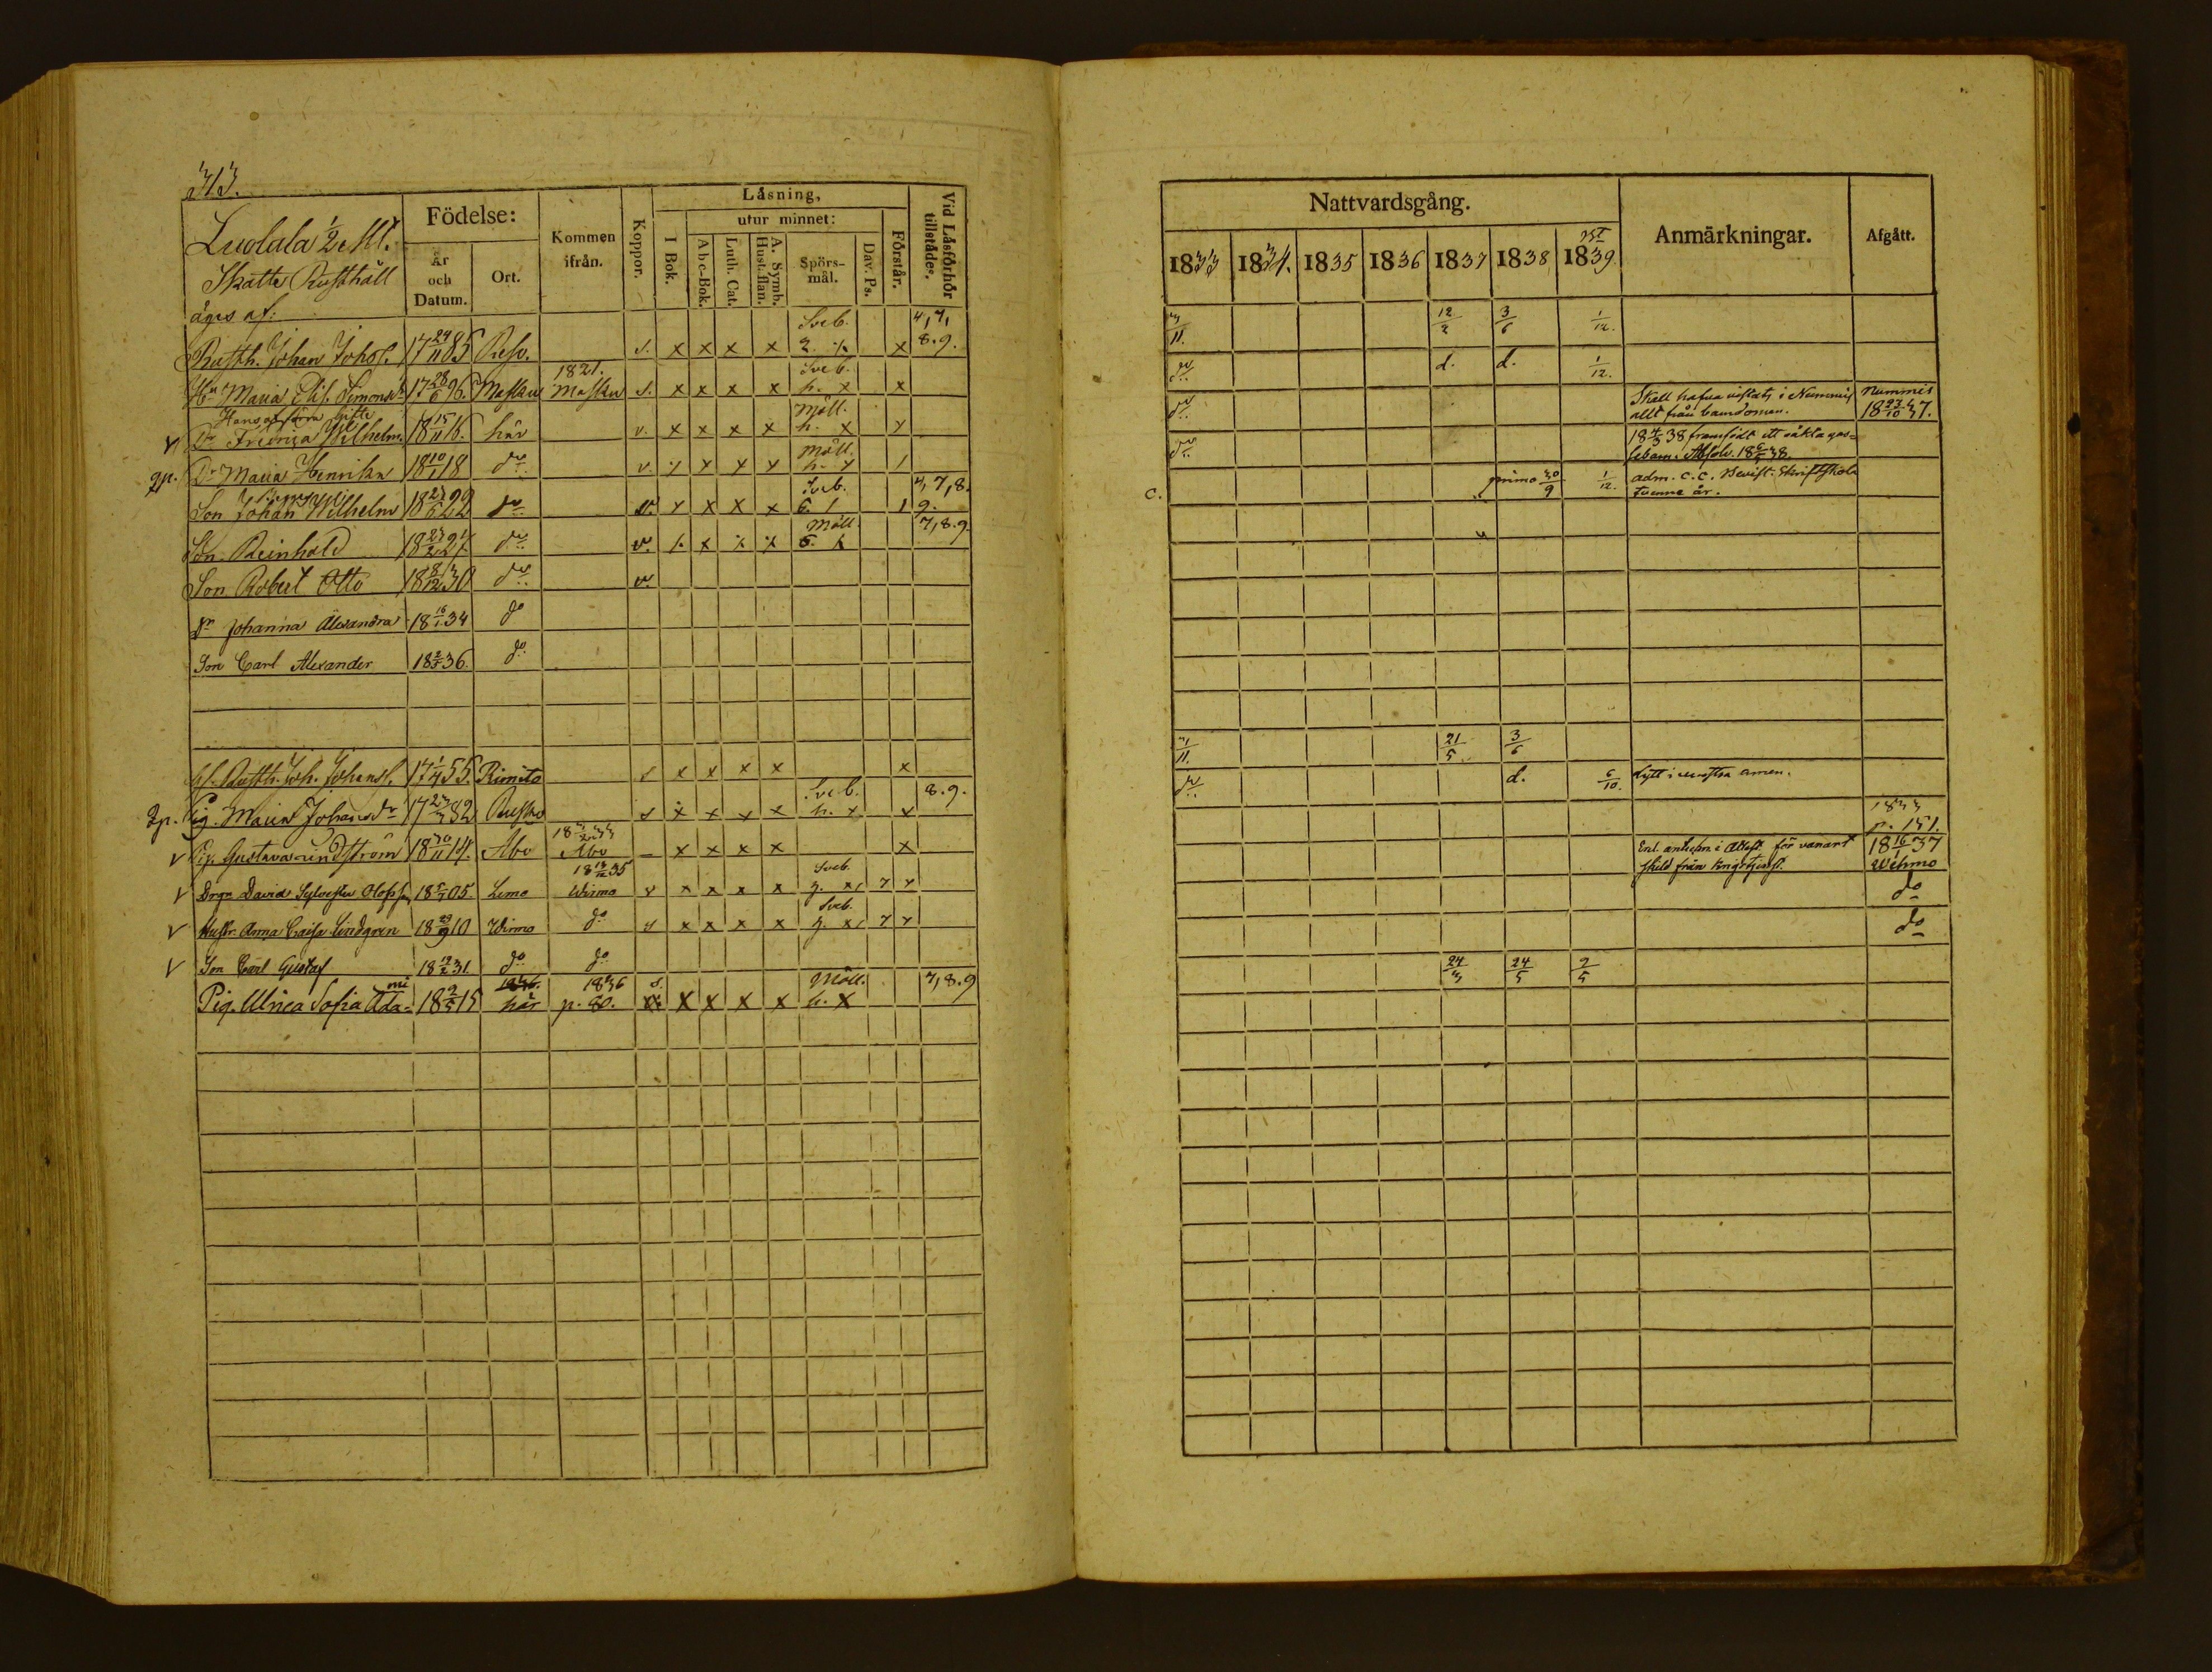 313.
Luolala 1/2 Mt.
Skatte Rusthåll
äges af:
Födelse:
år och Datum.
Ort.
Kommen ifrån.
Koppor.
Läsning,
I Bok.
utur minnet:
Abc-Bok.
Luth. Cat.
A. Symb. Hust. flan.
Spörsmål.
Dav. Ps.
Förstår.
Vid Läsförhör tillstädes.
Rusth. Johan Johss. 17 24/11 85 Reso. s. x x x x Sveb. 2. x 4, 7, 8. 9.
Hu Maria Elis. Simonsdr 17 28/6 96. Masku 1821. Masku s. x x x x Sveb. h. x x
Dr Fredrica Wilhelm. 18 15/11 16. här v. x x x x Möll. h. x x
gp. Dr Maria Henrika 18 10/1 18 do v. x x x x Möll. h. x 1
Son Johan Wilhelm 18 21/6 22 do v. x x x x Sveb. 6. 1 1 4, 7, 8. 9.
Son Reinhold 18 23/2 27. do v. x x x x Möll. 6. x 7, 8. 9.
Son Robert Otto 18 18/12 30 do v.
Dr Johanna Alexandra 18 16/1 34 do
Son Carl Alexander 18 2/5 36. do
Rusth. Joh. Johanss. 17 1/4 55. Rimito s x x x x x
gp. Pig. Maria Johansdr 17 23/3 82 Rusko s x x x x Sveb. h. x x 8. 9.
v Pig. Gustava Lindström 18 30/11 14. Åbo 1833 Åbo – x x x x x
v Drgn David Sylvester Olofss. 18 5/1 05. Lemo 18 13/12 35 Wirmo v x x x x Sveb. g. x, 7 x
v Hustr. Anna Caisa Lindgren 18 29/9 10 Wirmo do v x x x x Sveb. g. x, 7 x
v Son Carl Gustaf 18 19/2 31. do do
Pig. Ulrica Sofia Adami 18 9/5 15 här 1836 p. 80. s. x x x x Möll. h. x 7, 8. 9
Nattvardsgång.
1833 1834. 1835 1836 1837 1838 1839.
Anmärkningar.
Afgått.
3/11. 12/2 3/6 1/12.
do d. d. 1/12.
do Skall hafva vistats i Nummis
allt från barndomen.
Nummis
18 27/10 37.
do 18 4/3 38 framfödt ett oäkta gos-
sebarn. Absolv. 18 6/5 38.
c. primo 30/9 1/12. adm. C. C. Bevist. Skriftskola
tvenne år.
3/11. 21/5 3/6
do d. 6/10.
1833
p. 151.
Enl. anteckn. i Attest för vanart
skild från krigstjenst.
18 16/3 37
Wehmo
do
do
24/3 24/5 2/5